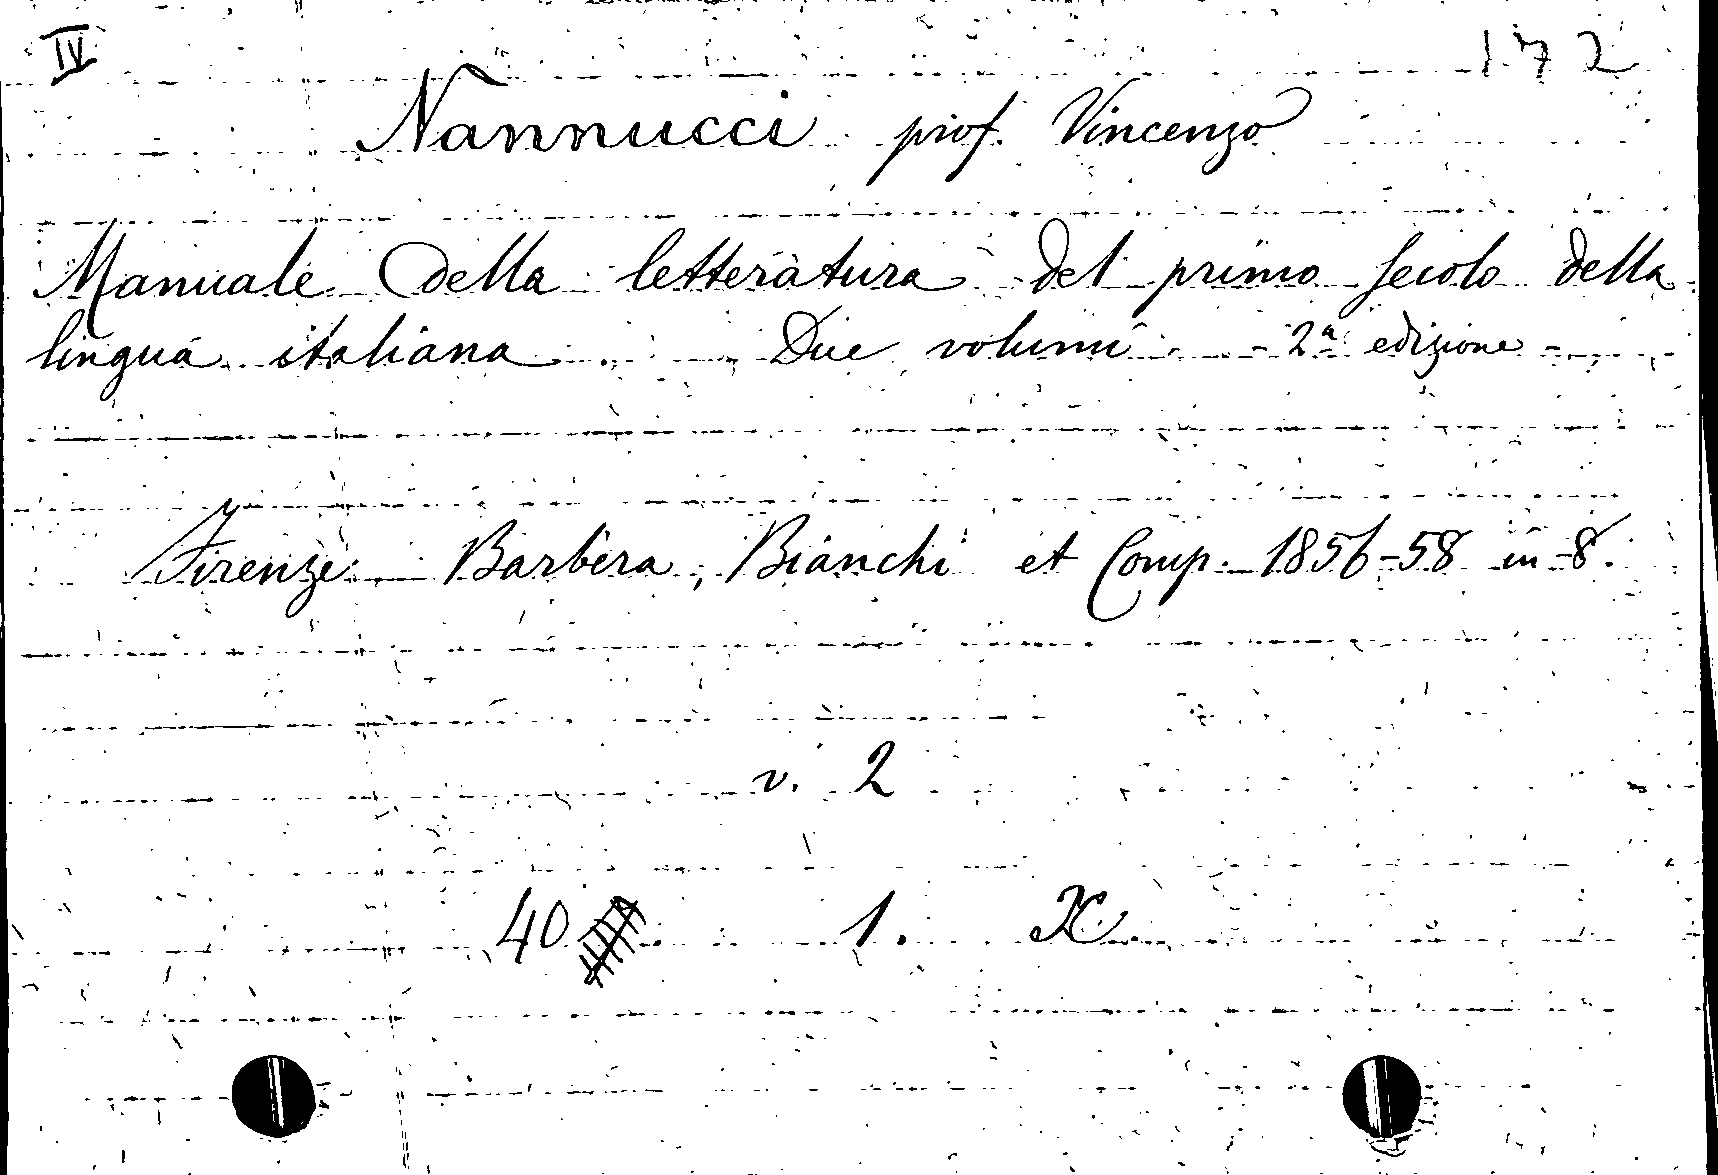 IV 172
Nannucci prof. Vincenzo
Manuale della letteratura del primo secolo della
lingua italiana. Due volumi - 2ª edizione -
Firenze Barbèra, Bianchi et Comp. 1856-58 in-8.
v. 2
40 1. X.